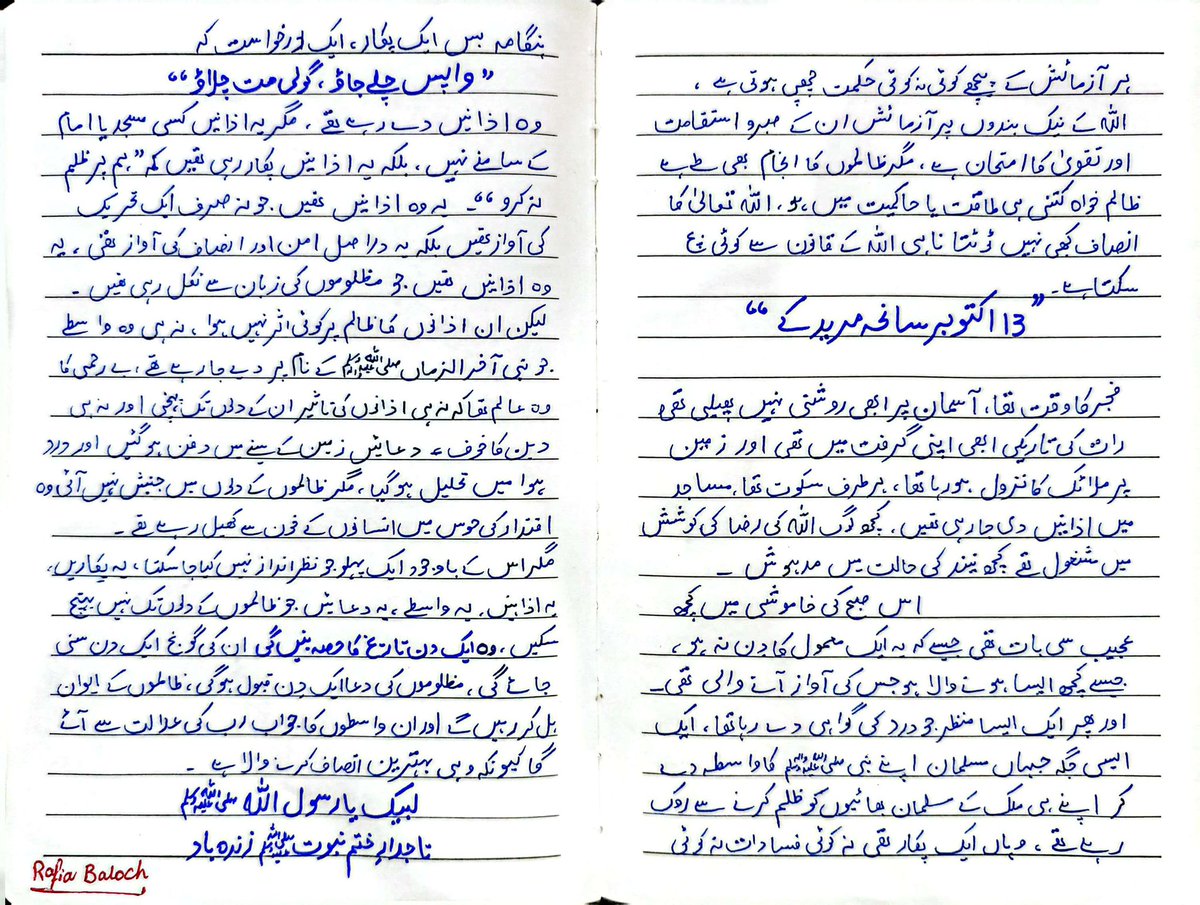 ہر آزمائش کے پیچھے کوئی نہ کوئی حکمت چھپی ہوتی ہے ،
اللہ کے نیک بندوں پر آزمائش ان کے صبر و استقامت
اور تقویٰ کا امتحان ہے ، مگر ظالموں کا انجام بھی طے ہے
ظالم خواہ کتنی ہی طاقت یا حاکمیت میں ہو ، اللہ تعالیٰ کا
انصاف کبھی نہیں ٹوٹتا نا ہی اللہ کے قانون سے کوئی بچ
سکتا ہے ۔
”13 اکتوبر سانحہ مریدکے“
فجر کا وقت تھا ، آسمان پر ابھی روشنی نہیں پھیلی تھی
رات کی تاریکی ابھی اپنی گرفت میں تھی اور زمین
پر ملائک کا نزول ہو رہا تھا ، ہر طرف سکوت تھا ، مساجد
میں اذانیں دی جا رہی تھیں ، کچھ لوگ اللہ کی رضا کی کوشش
میں مشغول تھے کچھ نیند کی حالت میں مدہوش ۔
اس صبح کی خاموشی میں کچھ
عجیب سی بات تھی جیسے کہ یہ ایک معمول کا دن نہ ہو ،
جیسے کچھ ایسا ہونے والا ہو جس کی آواز آنے والی تھی ۔
اور پھر ایک ایسا منظر جو درد کی گواہی دے رہا تھا ، ایک
ایسی جگہ جہاں مسلمان اپنے نبی ﷺ کا واسطہ دے
کر اپنے ہی ملک کے مسلمان بھائیوں کو ظلم کرنے سے روک
رہے تھے ، وہاں ایک پکار تھی نہ کوئی فسادات نہ کوئی
ہنگامہ بس ایک پکار ، ایک درخواست کہ
”واپس چلے جاؤ ، گولی مت چلاؤ“
وہ اذانیں دے رہے تھے ، مگر یہ اذانیں کسی مسجد یا امام
کے سامنے نہیں ، بلکہ یہ اذانیں پکار رہی تھیں کہ ”ہم پر ظلم
نہ کرو“ ۔ یہ وہ اذانیں تھیں جو نہ صرف ایک تحریک
کی آواز تھیں بلکہ یہ دراصل امن اور انصاف کی آواز تھی ، یہ
وہ اذانیں تھیں جو مظلوموں کی زبان سے نکل رہی تھیں ۔
لیکن ان اذانوں کا ظالم پر کوئی اثر نہیں ہوا ، نہ ہی وہ واسطے
جو نبی آخر الزماں ﷺ کے نام پر دیے جا رہے تھے ، بے رحمی کا
وہ عالم تھا کہ نہ ہی اذانوں کی تاثیر ان کے دلوں تک پہنچی اور نہ ہی
دین کا خوف ، دعائیں زمین کے سینے میں دفن ہو گئیں اور درد
ہوا میں تحلیل ہو گیا ، مگر ظالموں کے دلوں میں جنبش نہیں آئی وہ
اقتدار کی حوس میں انسانوں کے خون سے کھیل رہے تھے ۔
مگر اس کے باوجود ایک پہلو جو نظر انداز نہیں کیا جا سکتا ، یہ پکاریں ،
یہ اذانیں ، یہ واسطے ، یہ دعائیں جو ظالموں کے دلوں تک نہیں پہنچ
سکیں ، وہ ایک دن تاریخ کا حصہ بنیں گی ان کی گونج ایک دن سنی
جائے گی ، مظلوموں کی دعا ایک دن قبول ہوگی ، ظالموں کے ایوان
ہل کر رہیں گے اور ان واسطوں کا جواب رب کی عدالت سے آئے
گا کیونکہ وہی بہترین انصاف کرنے والا ہے ۔
لبیک یا رسول اللہ ﷺ
تاجدارِ ختم نبوت ﷺ زندہ باد
Rafia Baloch